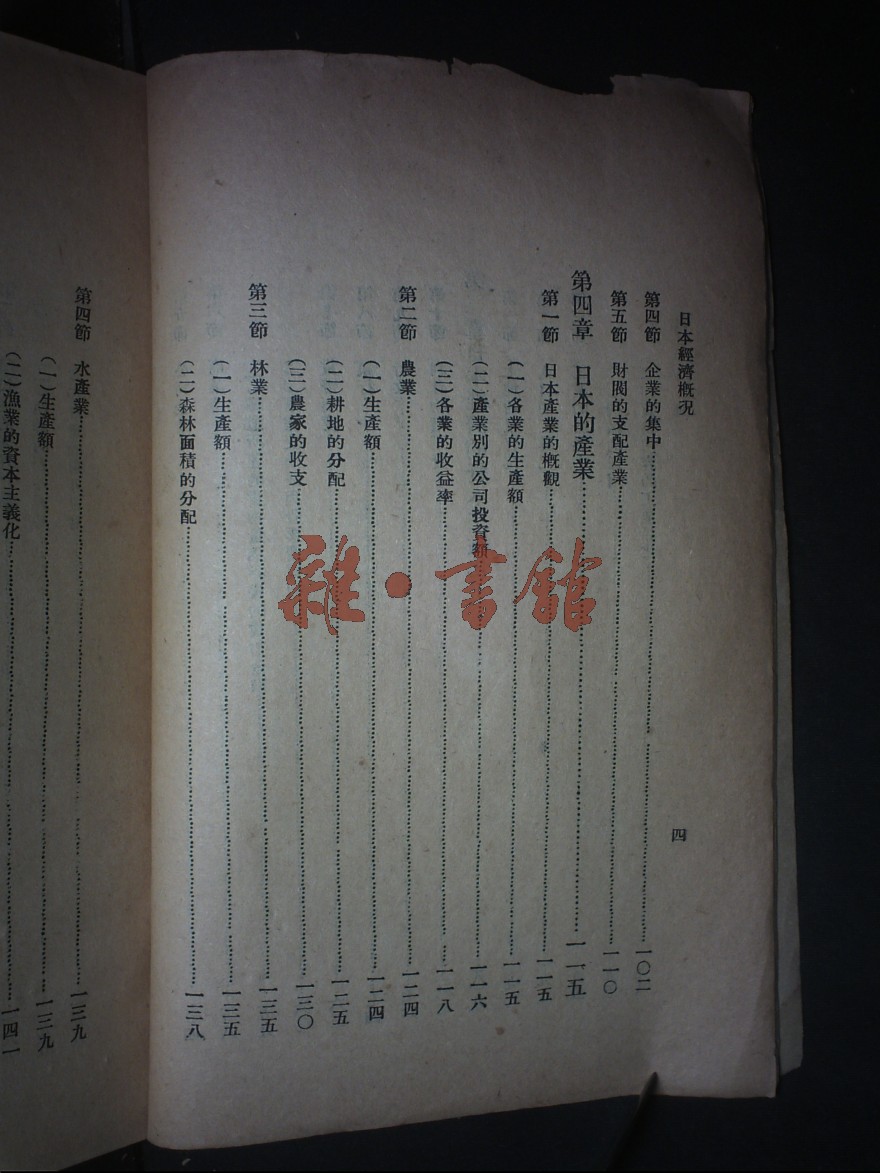 日本經濟槪况
四
第四節 企業的集中 一〇二
第五節 財閥的支配產業 一一〇
第四章 日本的產業 一一五
第一節 日本產業的槪觀 一一五
(一)各業的生產額 一一五
(二)產業別的公司投資額 一一六
(三)各業的收益率 一一八
第二節 農業 一二四
(一)生產額 一二四
(二)耕地的分配 一二五
(三)農家的收支 一三〇
第三節 林業 一三五
(一)生產額 一三五
(二)森林面積的分配 一三八
第四節 水產業 一三九
(一)生產額 一三九
(二)漁業的資本主義化 一四一
雜·書館